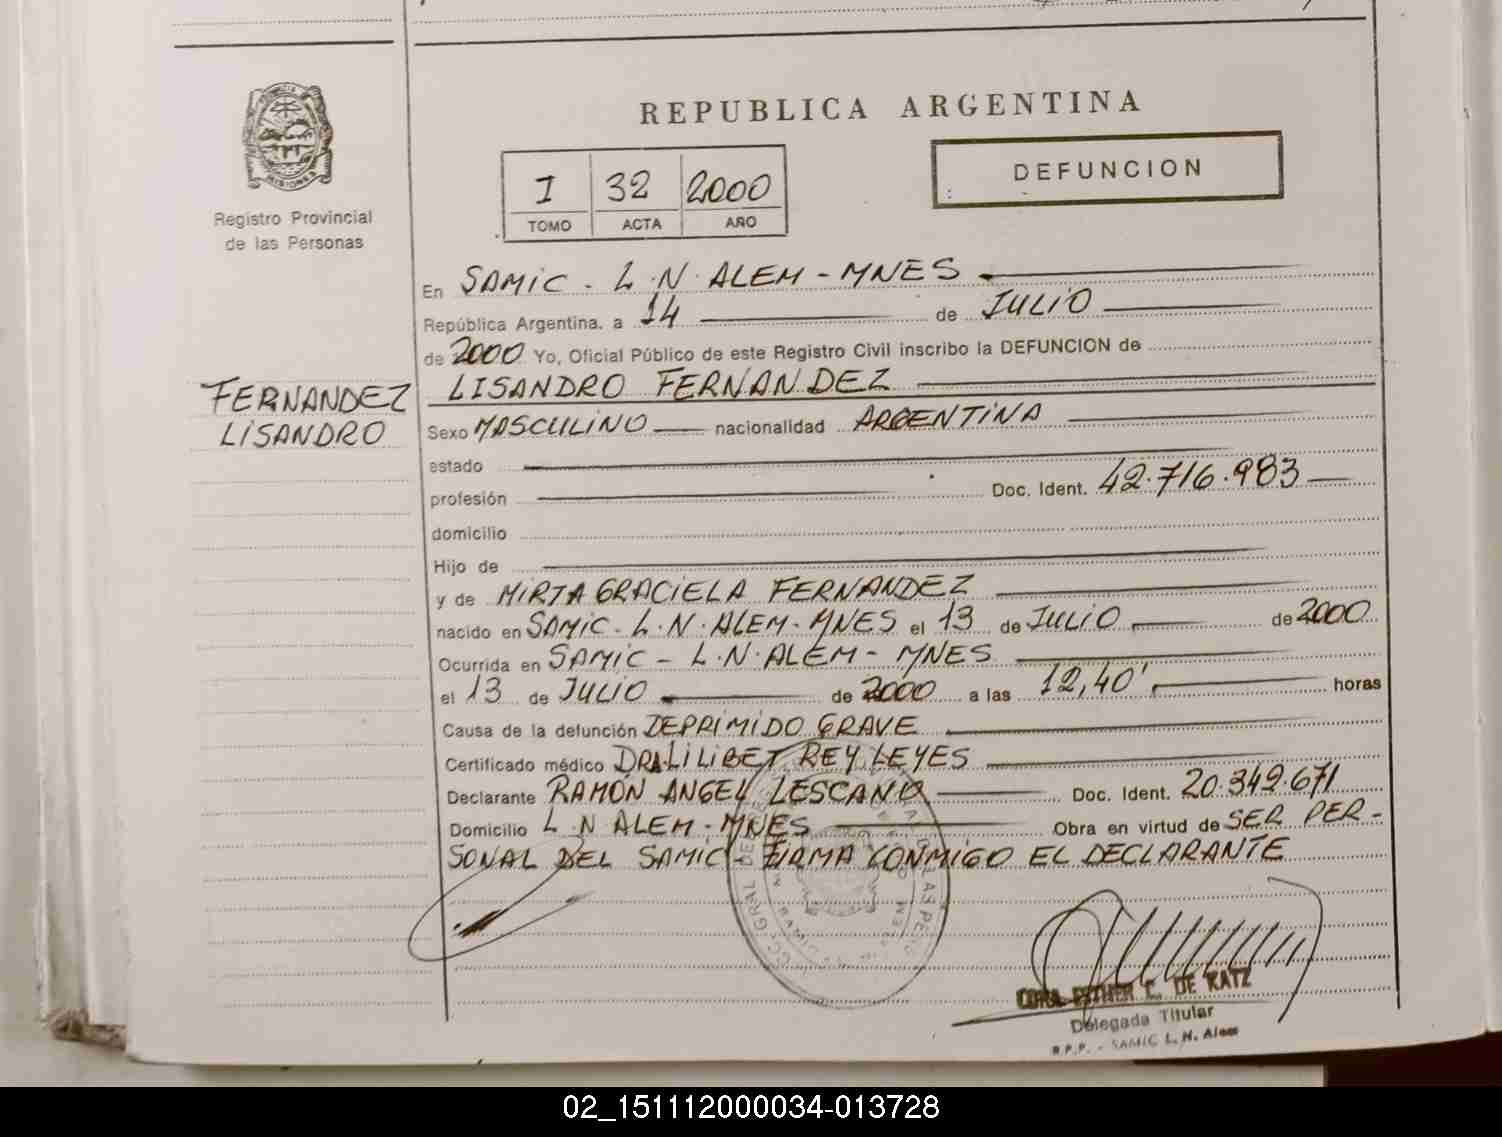 REPUBLICA ARGENTINA
MISIONES
Registro Provincial
de las Personas
I 32 2000
TOMO ACTA AÑO
DEFUNCION
En SAMIC - L.N. ALEM - MNES
República Argentina, a 14 de JULIO
de 2000 Yo, Oficial Público de este Registro Civil inscribo la DEFUNCION de
LISANDRO FERNANDEZ
FERNANDEZ
LISANDRO
Sexo MASCULINO nacionalidad ARGENTINA
estado
profesión Doc. Ident. 42.716.983
domicilio
Hijo de
y de MIRTA GRACIELA FERNANDEZ
nacido en SAMIC - L.N. ALEM - MNES el 13 de JULIO de 2000
Ocurrida en SAMIC - L.N. ALEM - MNES
el 13 de JULIO de 2000 a las 12,40' horas
Causa de la defunción DEPRIMIDO GRAVE
Certificado médico DRA. LILIBET REY LEYES
Declarante RAMÓN ANGEL LESCANO Doc. Ident. 20.349.671
Domicilio L.N ALEM - MNES Obra en virtud de SER PER-
SONAL DEL SAMIC - FIRMA CONMIGO EL DECLARANTE
DE KATZ
Delegada Titular
R.P.P. - SAMIC L. N. Alem
02_151112000034-013728